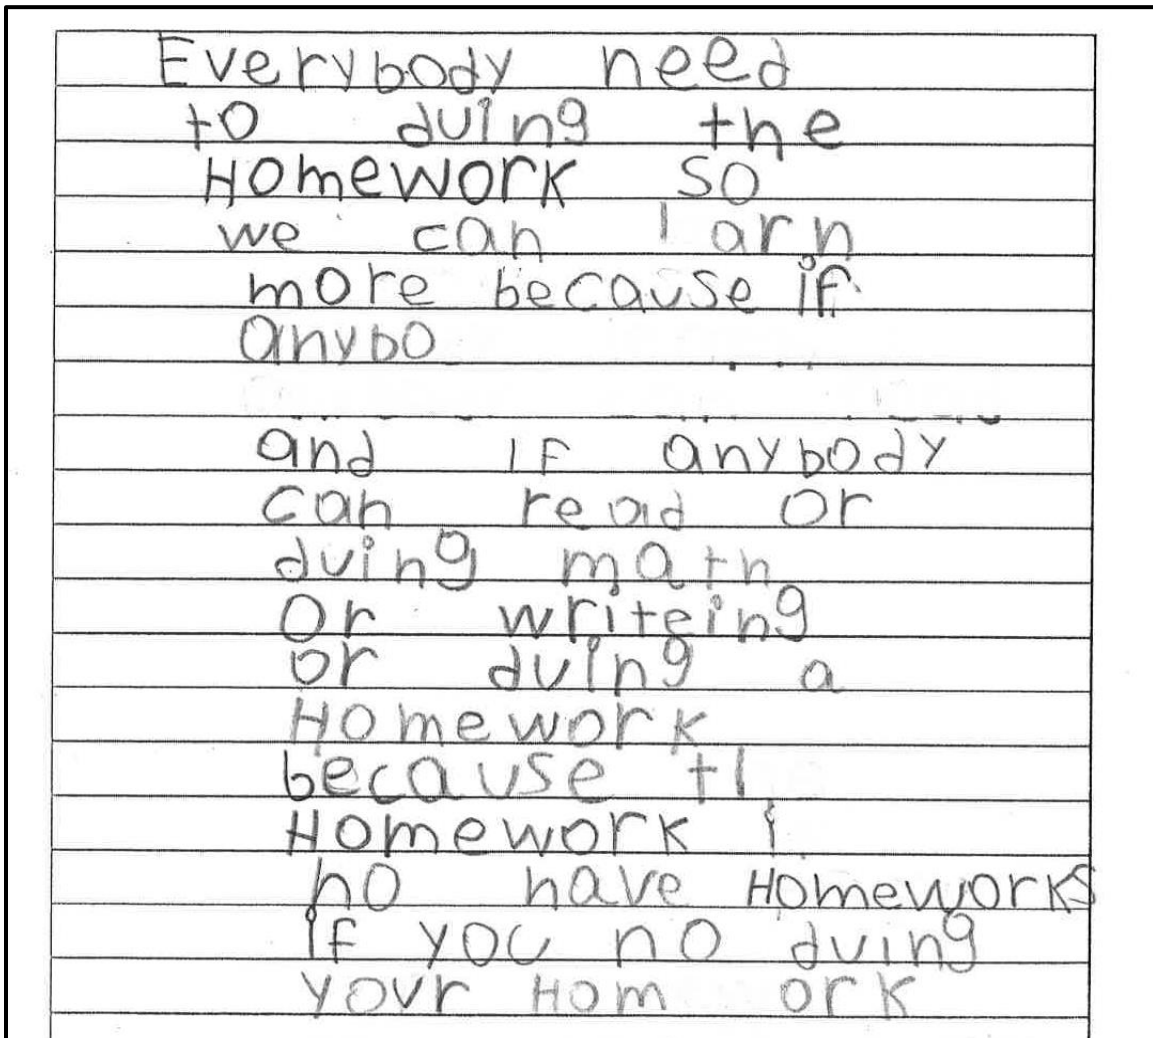 Everybody need
to duing the
Homework so
we can larn
more because if
anybo
and if anybody
can read or
duing math
or writeing
or duing a
Homework
because
Homework
no have Homeworks
if you no duing
your Hom ork